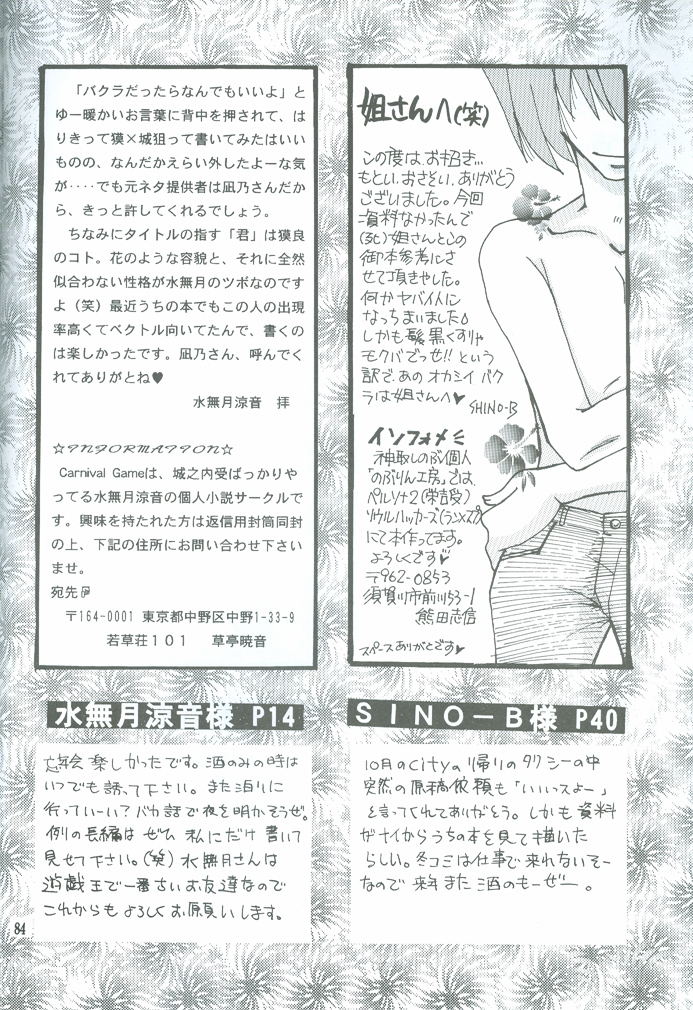 「バクラだったらなんでもいいよ」と
ゆー暖かいお言葉に背中を押されて、は
りきって獏×城狙って書いてみたはいい
ものの、なんだかえらい外したよーな気
が‥‥でも元ネタ提供者は凪乃さんだか
ら、きっと許してくれるでしょう。
ちなみにタイトルの指す「君」は獏良
のコト。花のような容貌と、それに全然
似合わない性格が水無月のツボなのです
よ（笑）最近うちの本でもこの人の出現
率高くてベクトル向いてたんで、書くの
は楽しかったです。凪乃さん、呼んでく
れてありがとね♥
水無月涼音　拝
☆INFORMATION☆
Carnival Gameは、城之内受ばっかりや
ってる水無月涼音の個人小説サークルで
す。興味を持たれた方は返信用封筒同封
の上、下記の住所にお問い合わせ下さい
ませ。
宛先
〒164-0001 東京都中野区中野1-33-9
若草荘１０１　草亭暁音
姐さんへ(笑)
この度は、お招き…
もとい、おさそい、ありがとう
ございました。今回
資料なかったんで
(る化)姐さんとこの
御本参考にさ
せて頂きやした。
何かヤバイ人に
なっちまいました
しかも髪黒くすりゃ
モクバでっせ!! という
訳で、あの オカシイ バク
ラは姐さんへ♥
SHINO-B
インフォメ
神取しのぶ個人
「のぶりん工房」では、
ペルソナ2(栄吉受)
ソウルハッカーズ(ランxスプ)
にて本作ってます。
よろしくです♥
〒962-0853
須賀川市前川53-1
熊田志信
スペースありがとです♥
水無月涼音様 P14
忘年会 楽しかったです。酒のみの時は
いつでも誘って下さい。また泊りに
行っていーい？バカ話で夜を明かそうぜ。
例の長編は ぜひ 私にだけ 書いて
見せて下さい。(笑) 水無月さんは
遊戯王で一番さいお友達なので
これからも よろしく お願いします。
ＳＩＮＯ－Ｂ様 P40
10月のcityの帰りのタクシーの中
突然の原稿依頼も「いいっスよー」
と言ってくれてありがとう。しかも資料
がナイからうちの本を見て描いた
らしい。冬コミは仕事で来れないそー
なので 来年また 酒のもーぜー。
84